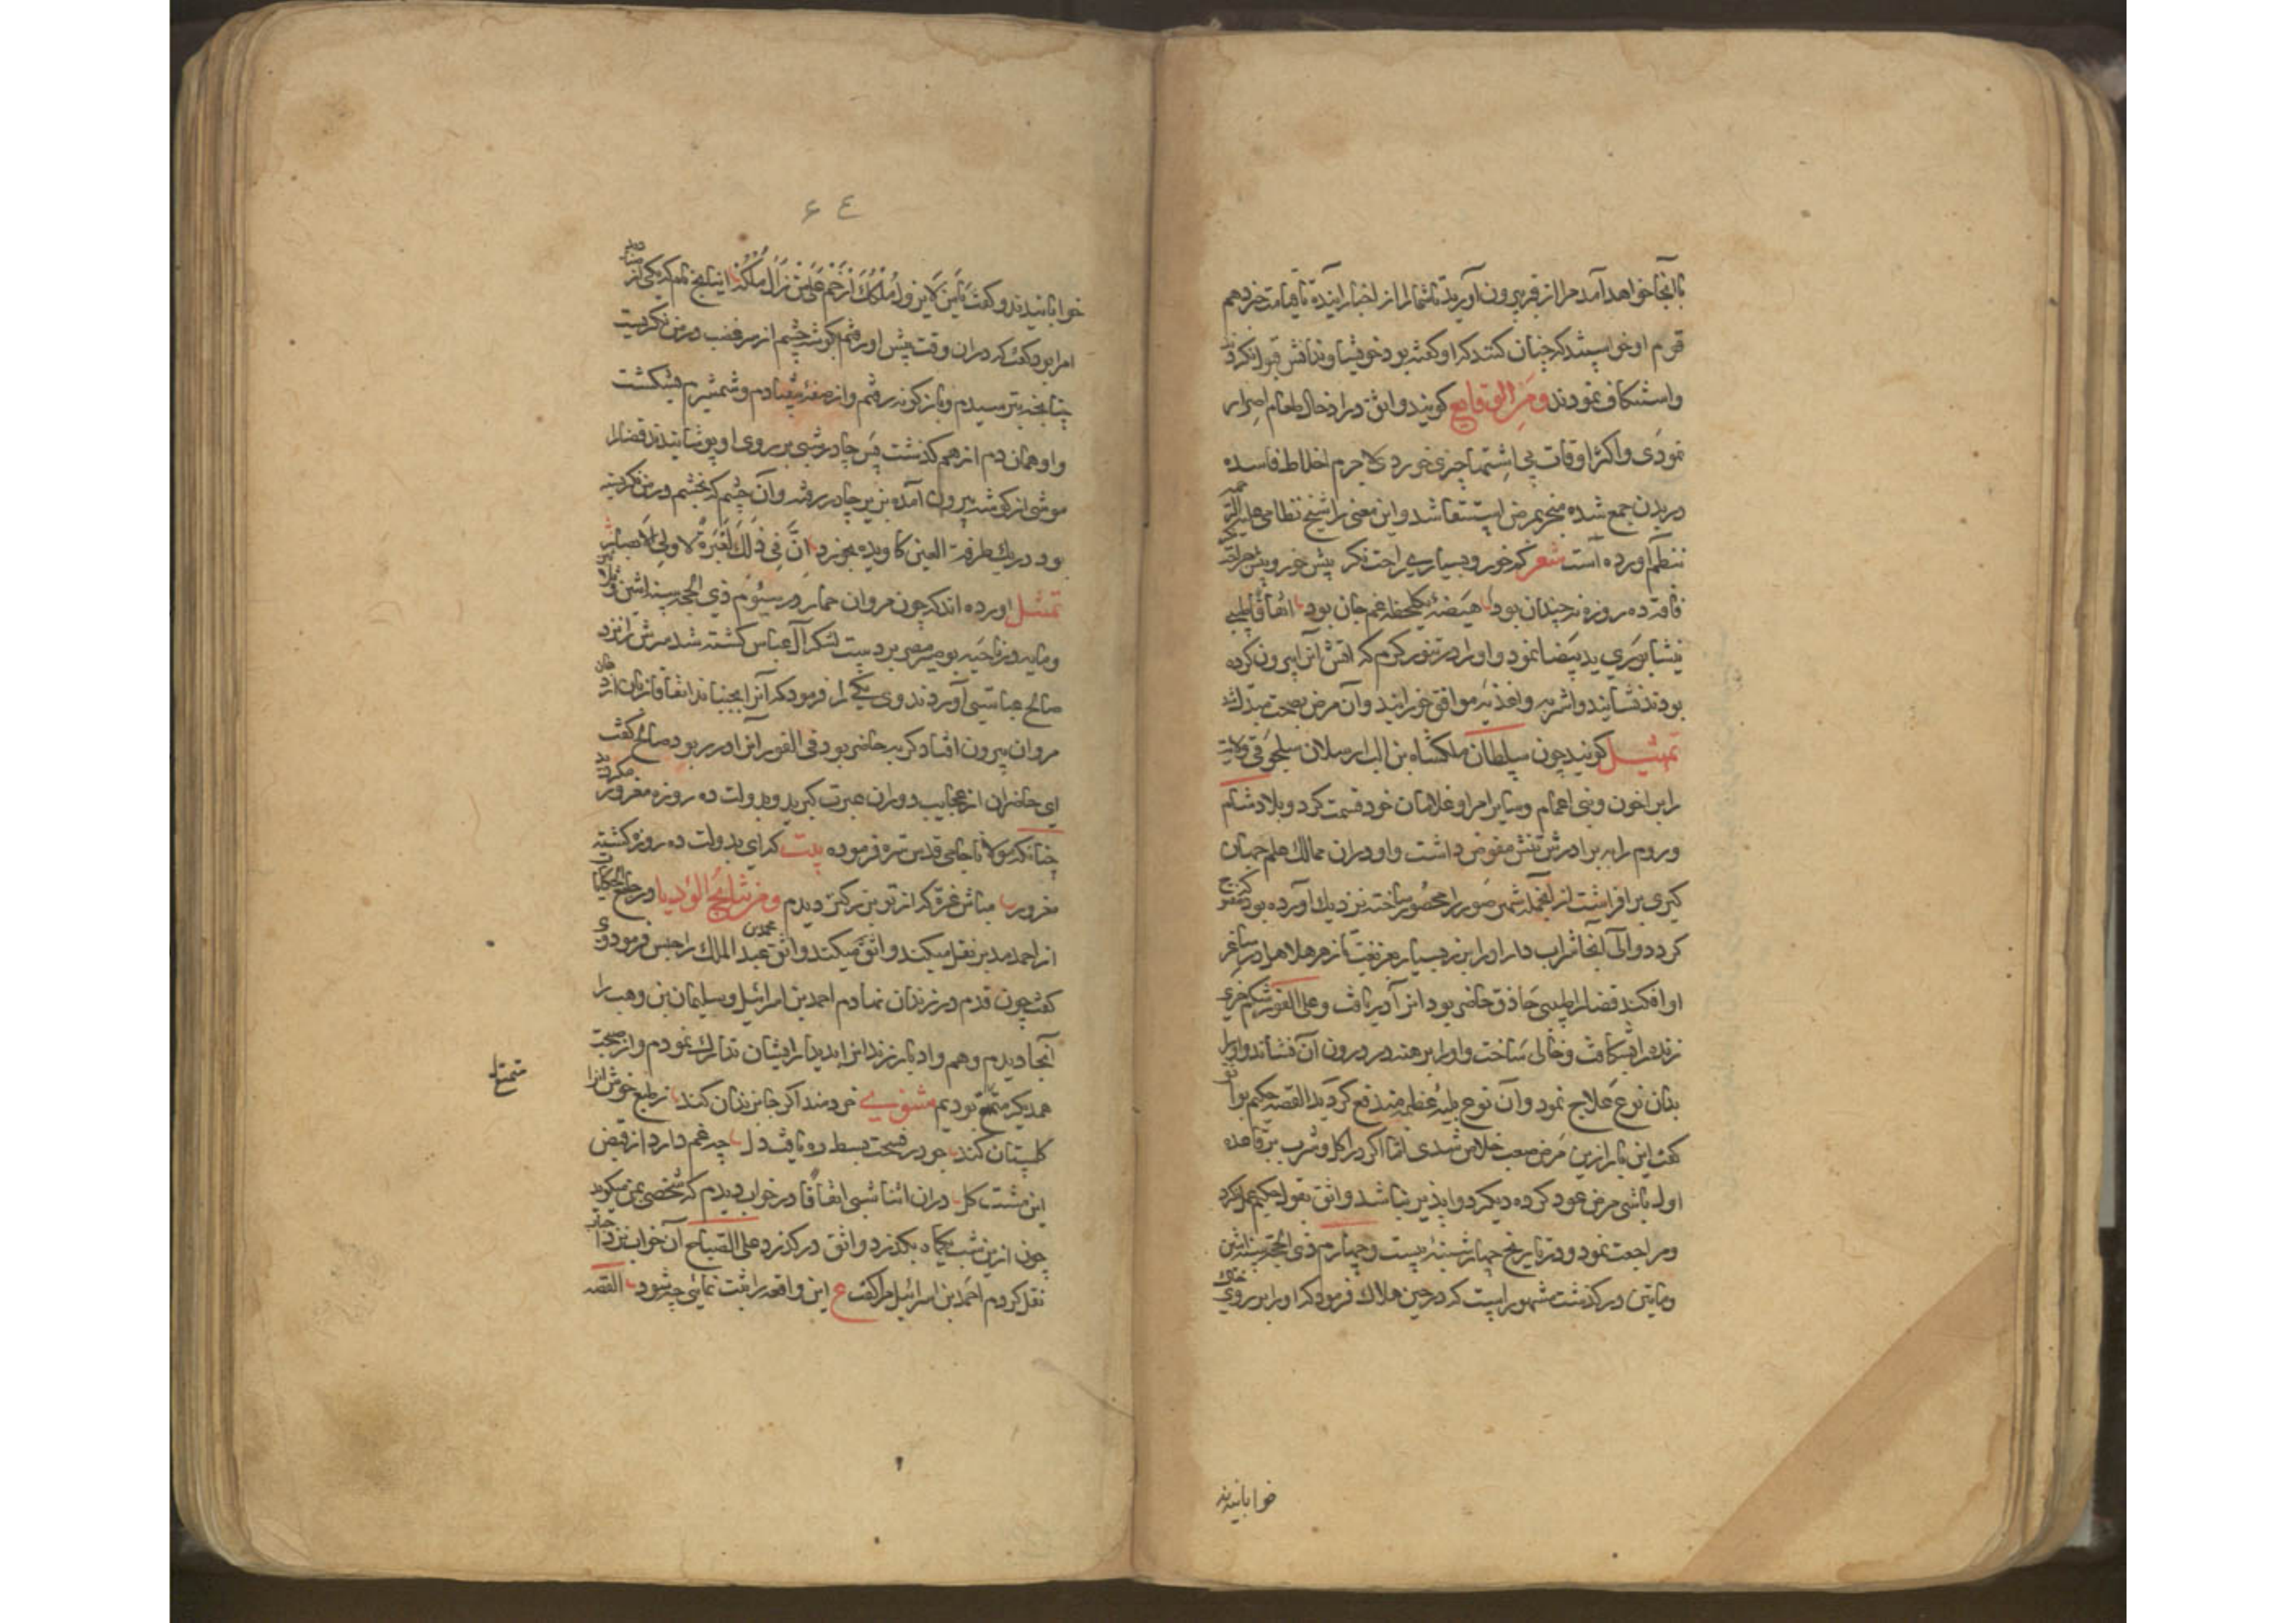 بآنجا خواهد آمد مرا از قبر بیرون آورید تا شما را از اخبار آینده تا قیامت خبر دهم
قوم او خواستند که چنان کنند که او گفته بود خویشاوندانش قبول نکردند
واستنکاف نمودند ومن الوقایع کویند واثق در ادخال طعام اصرار
نمودی واکثر اوقات بی اشتها چیزی خوردی لاجرم اخلاط فاسده
در بدن جمع شده منجر بمرض استسقا شد واین معنی را شیخ نظامی علیه الرحمه
بنظم آورده است شعر که خورد بسیاری راحت نکر بیش خور وبیش جراحت نکر
فاقه ده روزه نه چندان بود هیضه یکلحظه غم جان بود اتفاقا طبیبی
نیشابوری ید بیضا نمود واو را در تنور کرم که اتش از آن بیرون کرده
بودند نشانید واشربه واغذیه موافق خورانید وآن مرض بصحت مبدل شد
تمثیل کویند چون سلطان ملکشاه بن الب ارسلان سلجوقی ولایت
را بر اخون وبنی اعمام وسایر امرا وغلامان خود قسمت کرد وبلاد شام
وروم را به برادرش تتش مفوض داشت واو در آن ممالک علم جهان
کیری بر افراشت از آنجمله شهر صور را محصور ساخته نزدیک آورده بود که فتح
کردد والی آنجا شراب دار او را بزر بسیار بفریفت تا زهر هلاهل در ساغر
او افکند قضا را طبیبی حاذق حاضر بود انرا دریافت وعلی الفور شکم خری
زنده را بشکافت وخالی ساخت واو را برهنه در درون آن نشاند واو را
بدان نوع علاج نمود وآن نوع بلیه عظیمه مندفع کردید القصه حکیم بواثق
کفت این بار ازین مرض صعب خلاص شدی اما اکر در اکل وشرب بر قاعده
اول باشی مرض عود کرده دیکر دوا پذیر نباشد واثق بقول حکیم عمل نکرد
ومراجعت نمود ودر تاریخ چهارشنبه بیست وچهارم ذی الحجه سنه اثنین
ومایتین در کذشت مشهور است که در حین هلاک فرمود که او را بر روی خاک
خوابانیدند
٦٤
خوابانیدند وکفت یا من لا یزول ملکک ارحم علی من زال ملکه انیتاخ نام که یکی از
امرا بود کفت که در آن وقت پیش او رفتم کوشه چشم از سر غضب در من نکریست
چنانچه بترسیدم وباز کونه رفتم واز صفه بیفتادم وشمشیرم بشکست
واو همان دم از هم کذشت پس چادر شبی بر روی او پوشانیدند قضا را
موشی از کوشه بیرون آمده بزیر چادر رفته وآن چشم که بخشم در من نکریسته
بود در یک طرفة العین کاویده بخورد انَّ فِی ذَلِکَ لَعِبرَةً لاولِی الاَبصار
تمثیل اورده اند که چون مروان حمار در سیوم ذی الحجه سنه اثنین وثلاثین
ومایه در ناحیه بوصیر مصر بر دست لشکر آل عباس کشته شد سرش را نزد
صالح عباسی آوردند وی یکی را فرمود که آنرا بجنباند اتفاقا زبان از دهان
مروان بیرون افتاد کربه حاضر بود فی الفور آنرا در ربود صالح کفت
ای حاضران از عجایب دوران عبرت کیرید وبدولت ده روزه مغرور مکردید
چنانکه مولانا جامی قدس سره فرموده بیت که ای بدولت ده روزه کشته
مغرور مباش غره که از تو بزرکتر دیدم ومن نتایج الرؤیا در جامع الحکایات
از احمد مدبر نقل میکند واثق میکند واثق محمد بن عبد الملک را حبس فرمود وی
کفت چون قدم در زندان نهادم احمد بن اسرائیل وسلیمان بن وهب را
آنجا دیدم وهم وادبار زندان را بدیدار ایشان تدارک نمودم واز صحبت
همدیکر متمتع بودیم مثنوی خردمند اکر جا بزندان کند ز طبع خوش آنرا
کلستان کند چو در فسحت بسط ره یافت دل چه غم دارد از قبض
این مشت کل در آن اثنا شبی اتفاقا در خواب دیدم که شخصی بمن میکوید
چون ازین شب یکماه بکذرد واثق در کذرد علی الصباح آن خواب نزد احباب
نقل کردم احمد بن اسرائیل مرا کفت ع این واقعه را ثبت نمائی چه شود القصه
متمتع